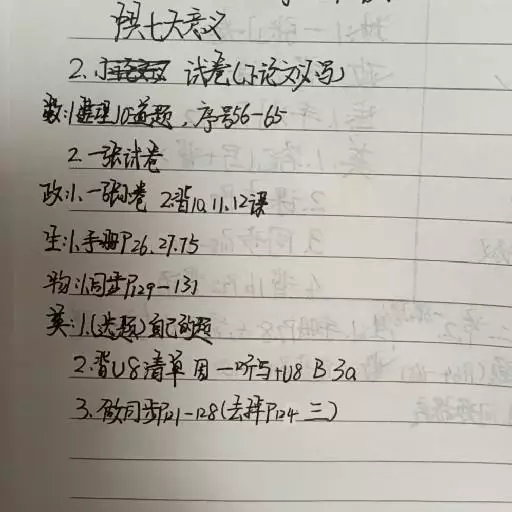 七大意义
2. 试卷(小论文不写)
数:1.整理10道题,序号56-65
2.一张试卷
政:1.一张小卷 2.背10.11.12课
生:1.手册P26.27.75
物:1.同步P129-131
英:1.(选题)自己的题
2.背U8清单 一听写+U8 B 3a
3.做同步P121-128(去掉P124 三)